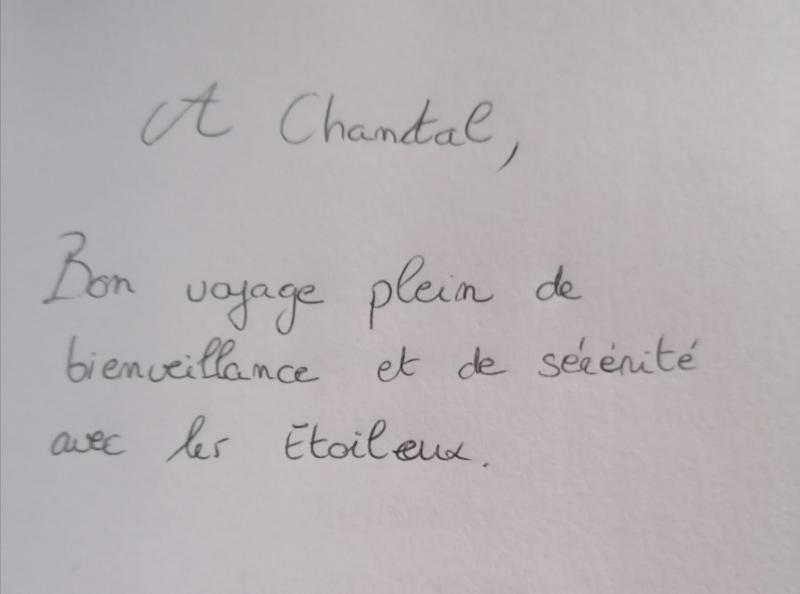 A Chantal,
Bon voyage plein de
bienveillance et de sérénité
avec les Etoileux.